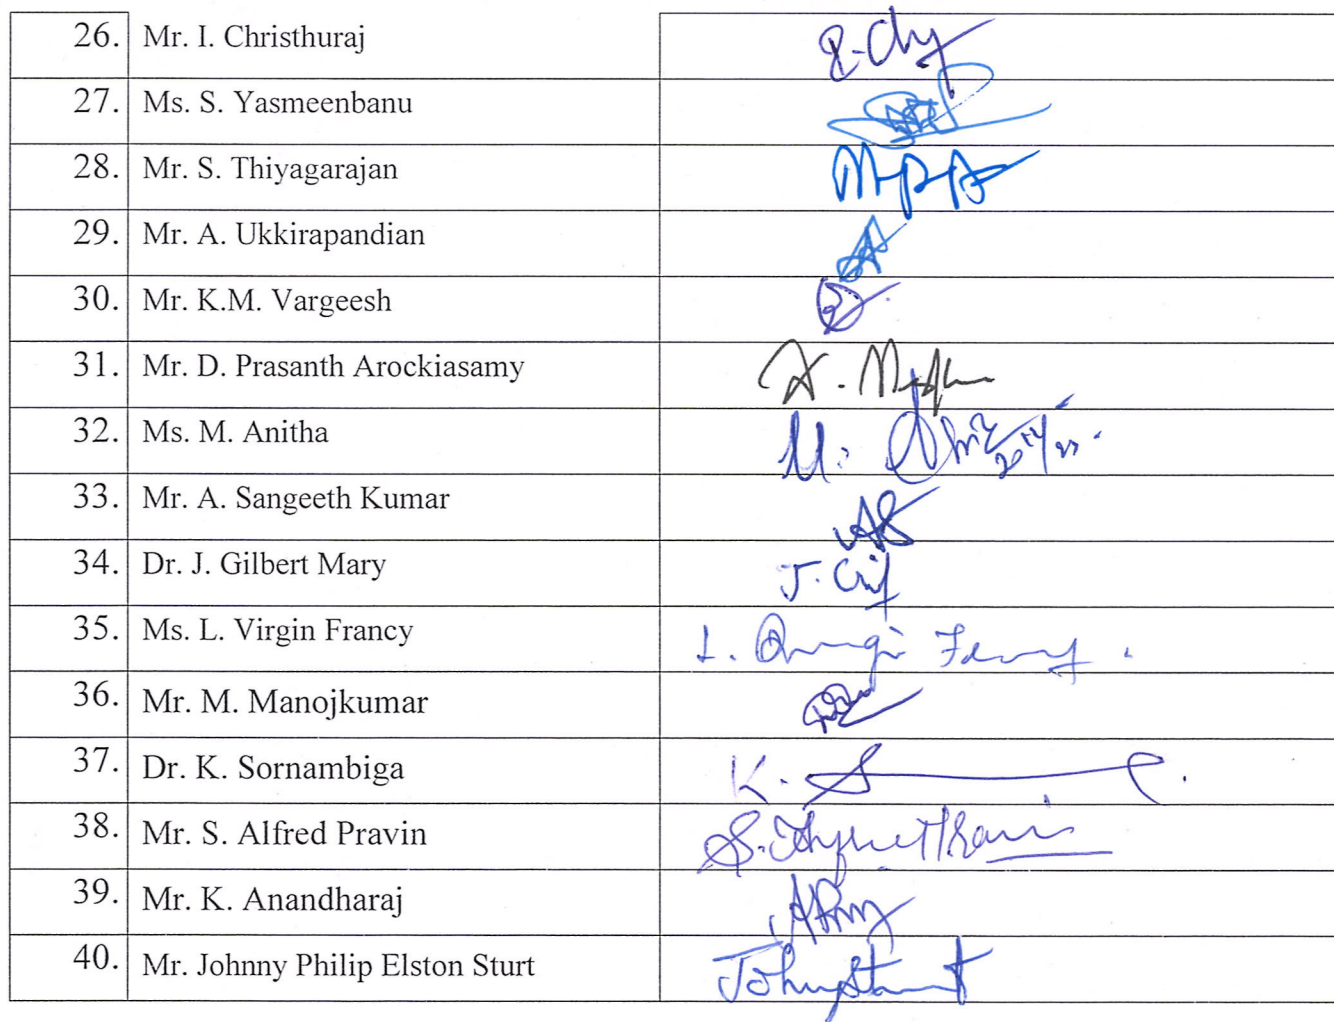 26. Mr. I. Christhuraj
27. Ms. S. Yasmeenbanu
28. Mr. S. Thiyagarajan
29. Mr. A. Ukkirapandian
30. Mr. K.M. Vargeesh
31. Mr. D. Prasanth Arockiasamy
32. Ms. M. Anitha M.
33. Mr. A. Sangeeth Kumar
34. Dr. J. Gilbert Mary J.
35. Ms. L. Virgin Francy L.
36. Mr. M. Manojkumar
37. Dr. K. Sornambiga K. S
38. Mr. S. Alfred Pravin S.
39. Mr. K. Anandharaj
40. Mr. Johnny Philip Elston Sturt